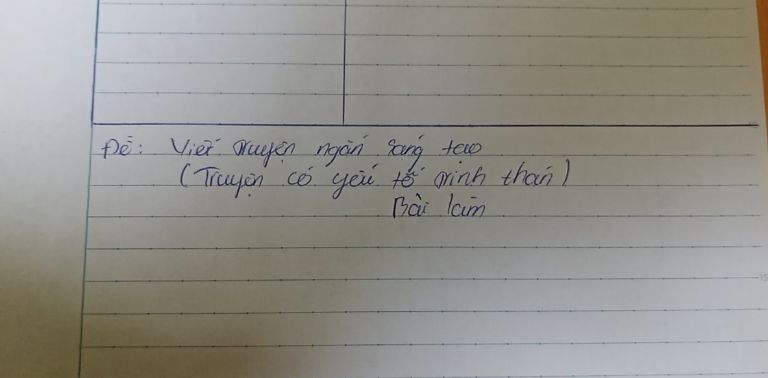 Đề: Viết truyện ngắn sáng tạo
(Truyện có yếu tố trinh thám)
Bài làm